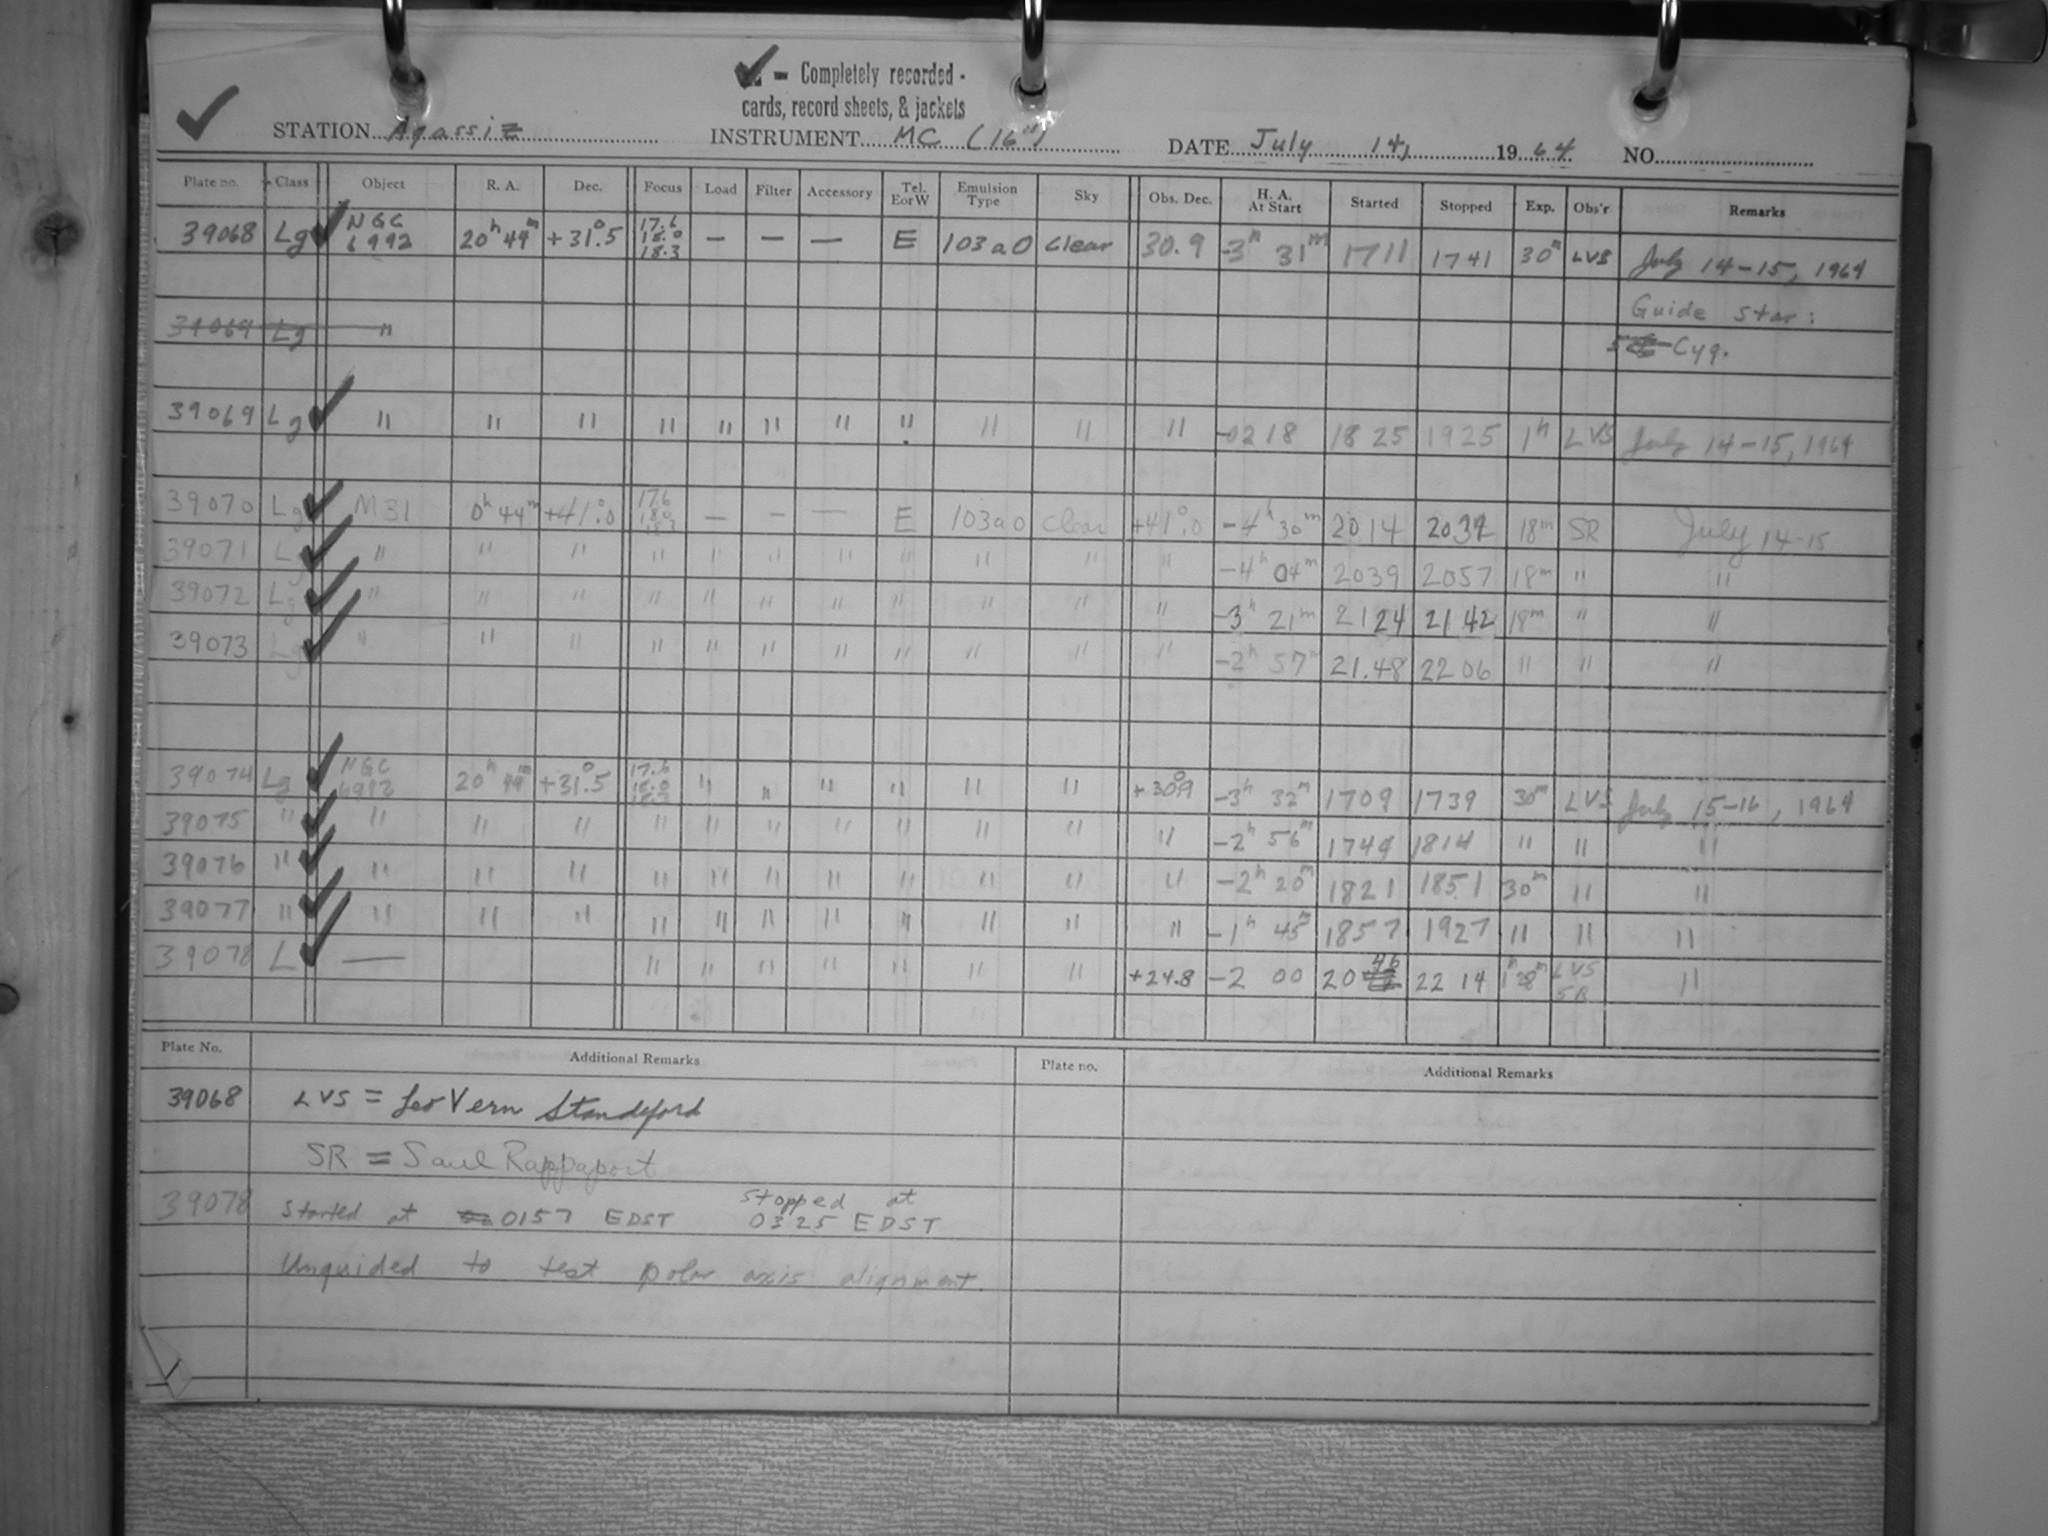 ✓ - Completely recorded -
cards, record sheets, & jackets
STATION Agassiz INSTRUMENT MC (16") DATE July 14, 1964 NO.
Plate no. Class Object R. A. Dec. Focus Load Filter Accessory Tel. E or W Emulsion Type Sky Obs. Dec. H. A. At Start Started Stopped Exp. Obs'r Remarks
39068 Lg NGC 6992 20h 44m +31°.5 17.6 18.0 18.3 — — — E 103a0 Clear 30.9 -3h 31m 1711 1741 30m LVS July 14-15, 1964
Guide star:
Lg " Cyg.
39069 Lg " " " " " " " " " " " -02 18 18 25 1925 1h LVS July 14-15, 1964
39070 Lg M31 0h 44m +41°.0 17.6 18.0 18.3 — — — E 103a0 Clear +41°.0 -4h 30m 2014 2032 18m SR July 14-15
39071 Lg " " " " " " " " " " " -4h 04m 2039 2057 18m " "
39072 Lg " " " " " " " " " " " -3h 21m 2124 2142 18m " "
39073 Lg " " " " " " " " " " " -2h 57m 21.48 2206 " " "
39074 Lg NGC 6992 20h 44m +31°.5 17.6 18.0 18.3 " " " " " " +30°.9 -3h 32m 1709 1739 30m LVS July 15-16, 1964
39075 " " " " " " " " " " " " -2h 56m 1744 1814 " " "
39076 " " " " " " " " " " " " -2h 20m 1821 1851 30m " "
39077 " " " " " " " " " " " " -1h 45m 1857 1927 " " "
39078 L — " " " " " " " +24.8 -2 00 20 46 22 14 1h 28m LVS SR "
Plate No. Additional Remarks Plate no. Additional Remarks
39068 LVS = LeoVern Standeford
SR = Saul Rappaport
39078 Started at 0157 EDST Stopped at 0325 EDST
Unguided to test polar axis alignment.